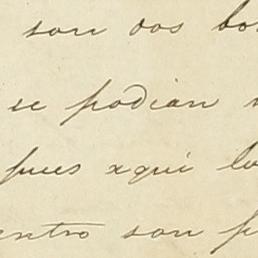 son dos bo
se podian
pues aqui lo
entro son p